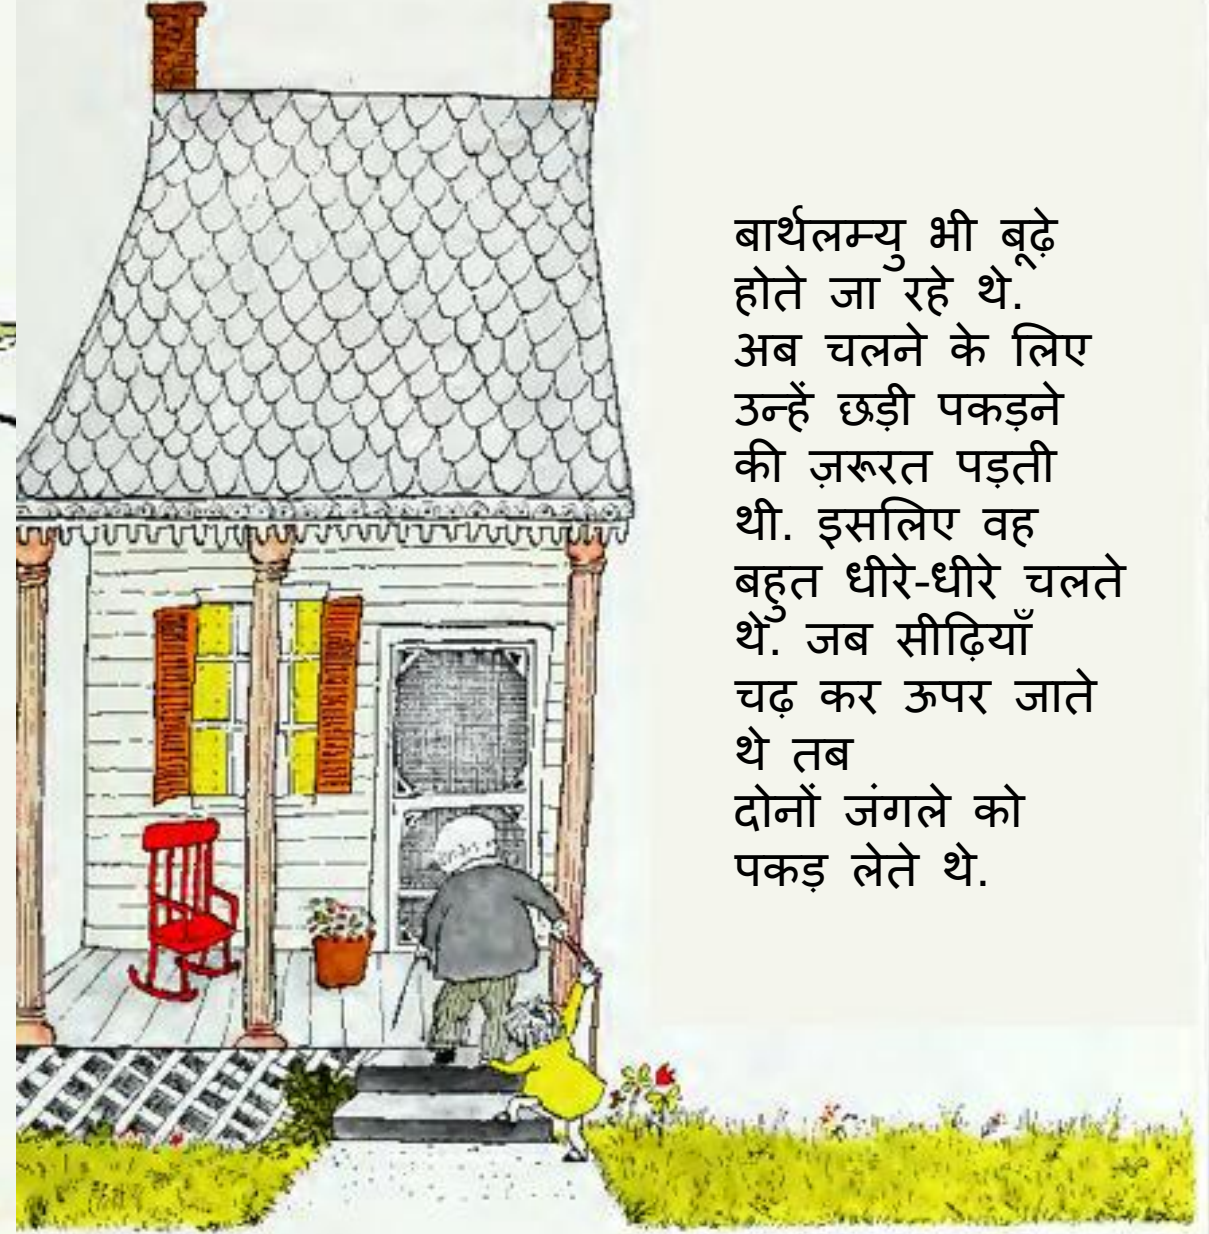 बार्थलम्यु भी बूढ़े
होते जा रहे थे.
अब चलने के लिए
उन्हें छड़ी पकड़ने
की ज़रूरत पड़ती
थी. इसलिए वह
बहुत धीरे-धीरे चलते
थे. जब सीढ़ियाँ
चढ़ कर ऊपर जाते
थे तब
दोनों जंगले को
पकड़ लेते थे.